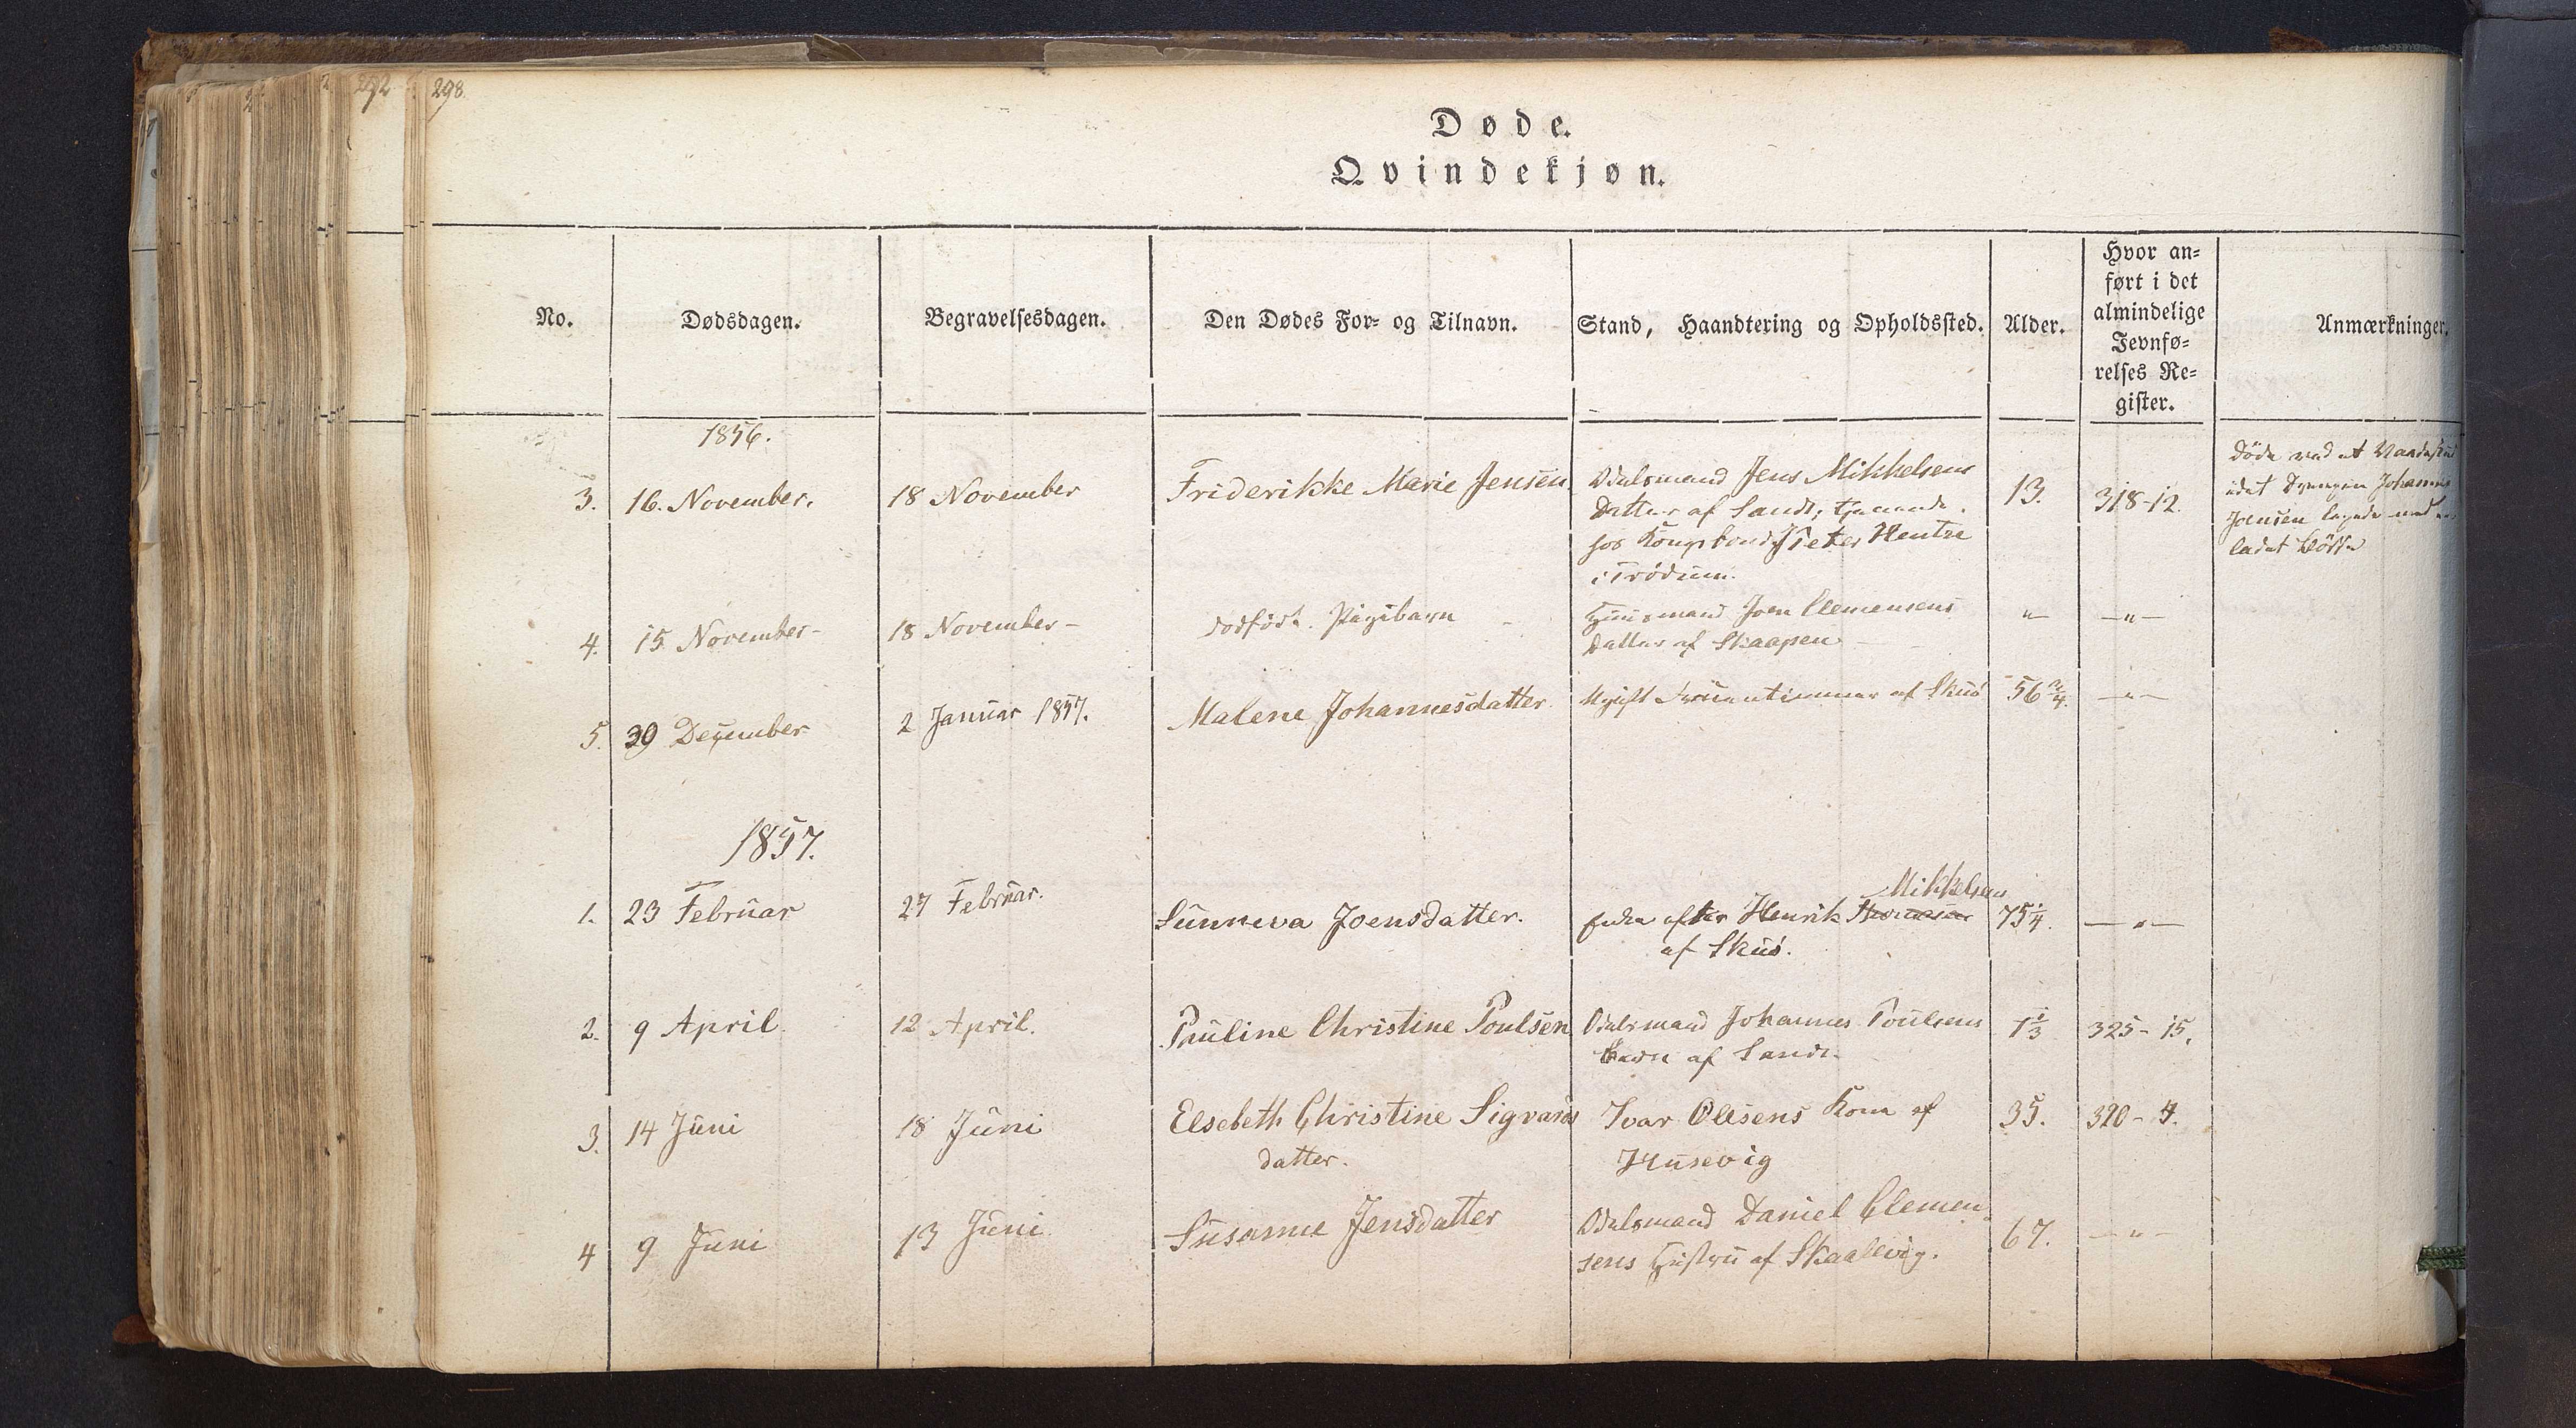 292
298
Døde.
Qvindekjøn.
No.
Dødsdagen.
Begravelsesdagen.
Den Dødes For- og Tilnavn.
Stand, Haandtering og Opholdssted.
Alder.
Hvor an-
ført i det
almindelige
Jevnfø-
relses Re-
gister.
Anmærkninger.
1856.
3. 16. November. 18 November Friderikke Marie Jensen Odelsmand Jens Mikkelsens 13. 318-12.
Datter af Sand, tjenende
hos Kongsbonde Peter
i Trödum.
döde ved et Vaadeskud
idet Drengen Johannes
Jensen legede med en
ladet Bösse
4. 15 November- 18 November- dödfödt Pigebarn - Huusmand Joen Clemensens " -"-
Datter af Skaapen
5. 30 December 2 Januar 1857. Malene Johannesdatter Ugift Fruentimmer af Skuö 56 3/4. -"-
1857.
1. 23 Februar 27 Februar. Sunneva Joensdatter. Enke efter Henrik Mikkelsen 75 1/4. -"-
af Skuö.
2. 9 April 12 April. Pauline Christine Poulsen Odelsmand Johannes Poulsens 1 1/3 325-15.
Barn af Sand.
3. 14 Juni 18 Juni Elsebeth Christine Sigvards Ivar Olesens Kone af 35. 320-4.
datter. Husevig
4 9 Juni 13 Juni Susanne Jensdatter Odelsmand Daniel Clemen- 67. -"-
sens Hustru af Skaalevig.